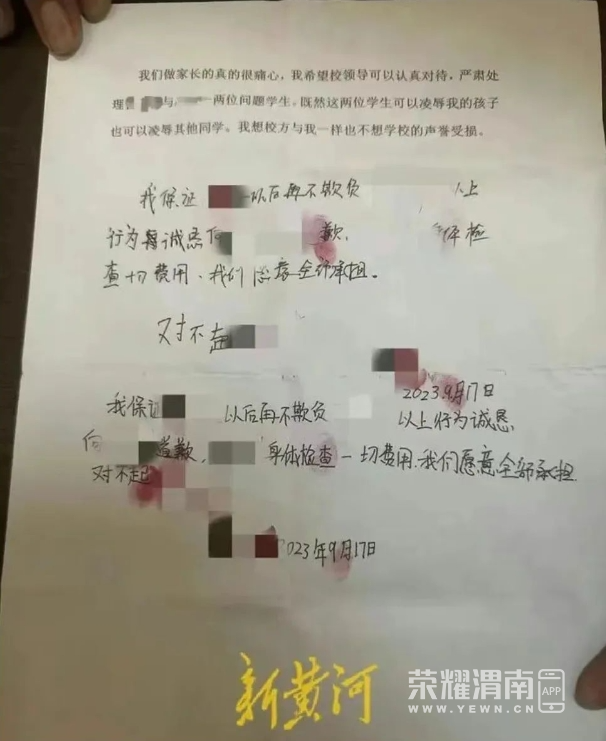 我们做家长的真的很痛心，我希望校领导可以认真对待，严肃处
理 与 两位问题学生。既然这两位学生可以凌辱我的孩子
也可以凌辱其他同学。我想校方与我一样也不想学校的声誉受损。
我保证 以后再不欺负 以上
行为 诚恳向 歉, 体检
查一切费用、我们愿意全部承担。
对不起
2023.9月17日
我保证 以后再不欺负 以上行为诚恳
向 道歉, 身体检查一切费用.我们愿意全部承担
对不起
2023年9月17日
新黄河
荣耀渭南APP
WWW.YEWN.CN